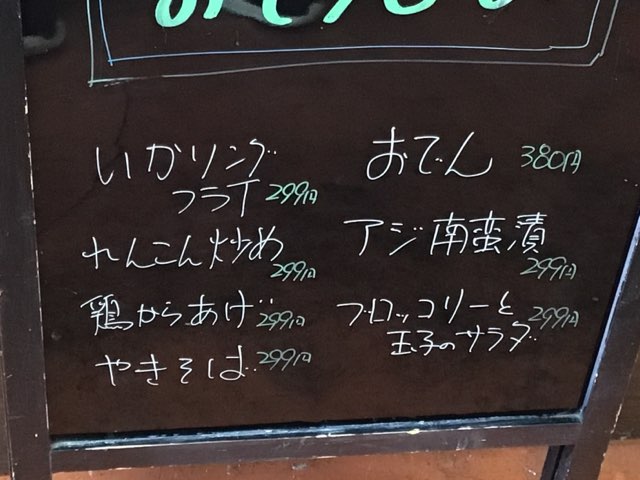 いかリング
フライ 299円
れんこん炒め
299円
鶏からあげ 299円
やきそば 299円
おでん 380円
アジ南蛮漬
299円
ブロッコリーと
玉子のサラダ 299円